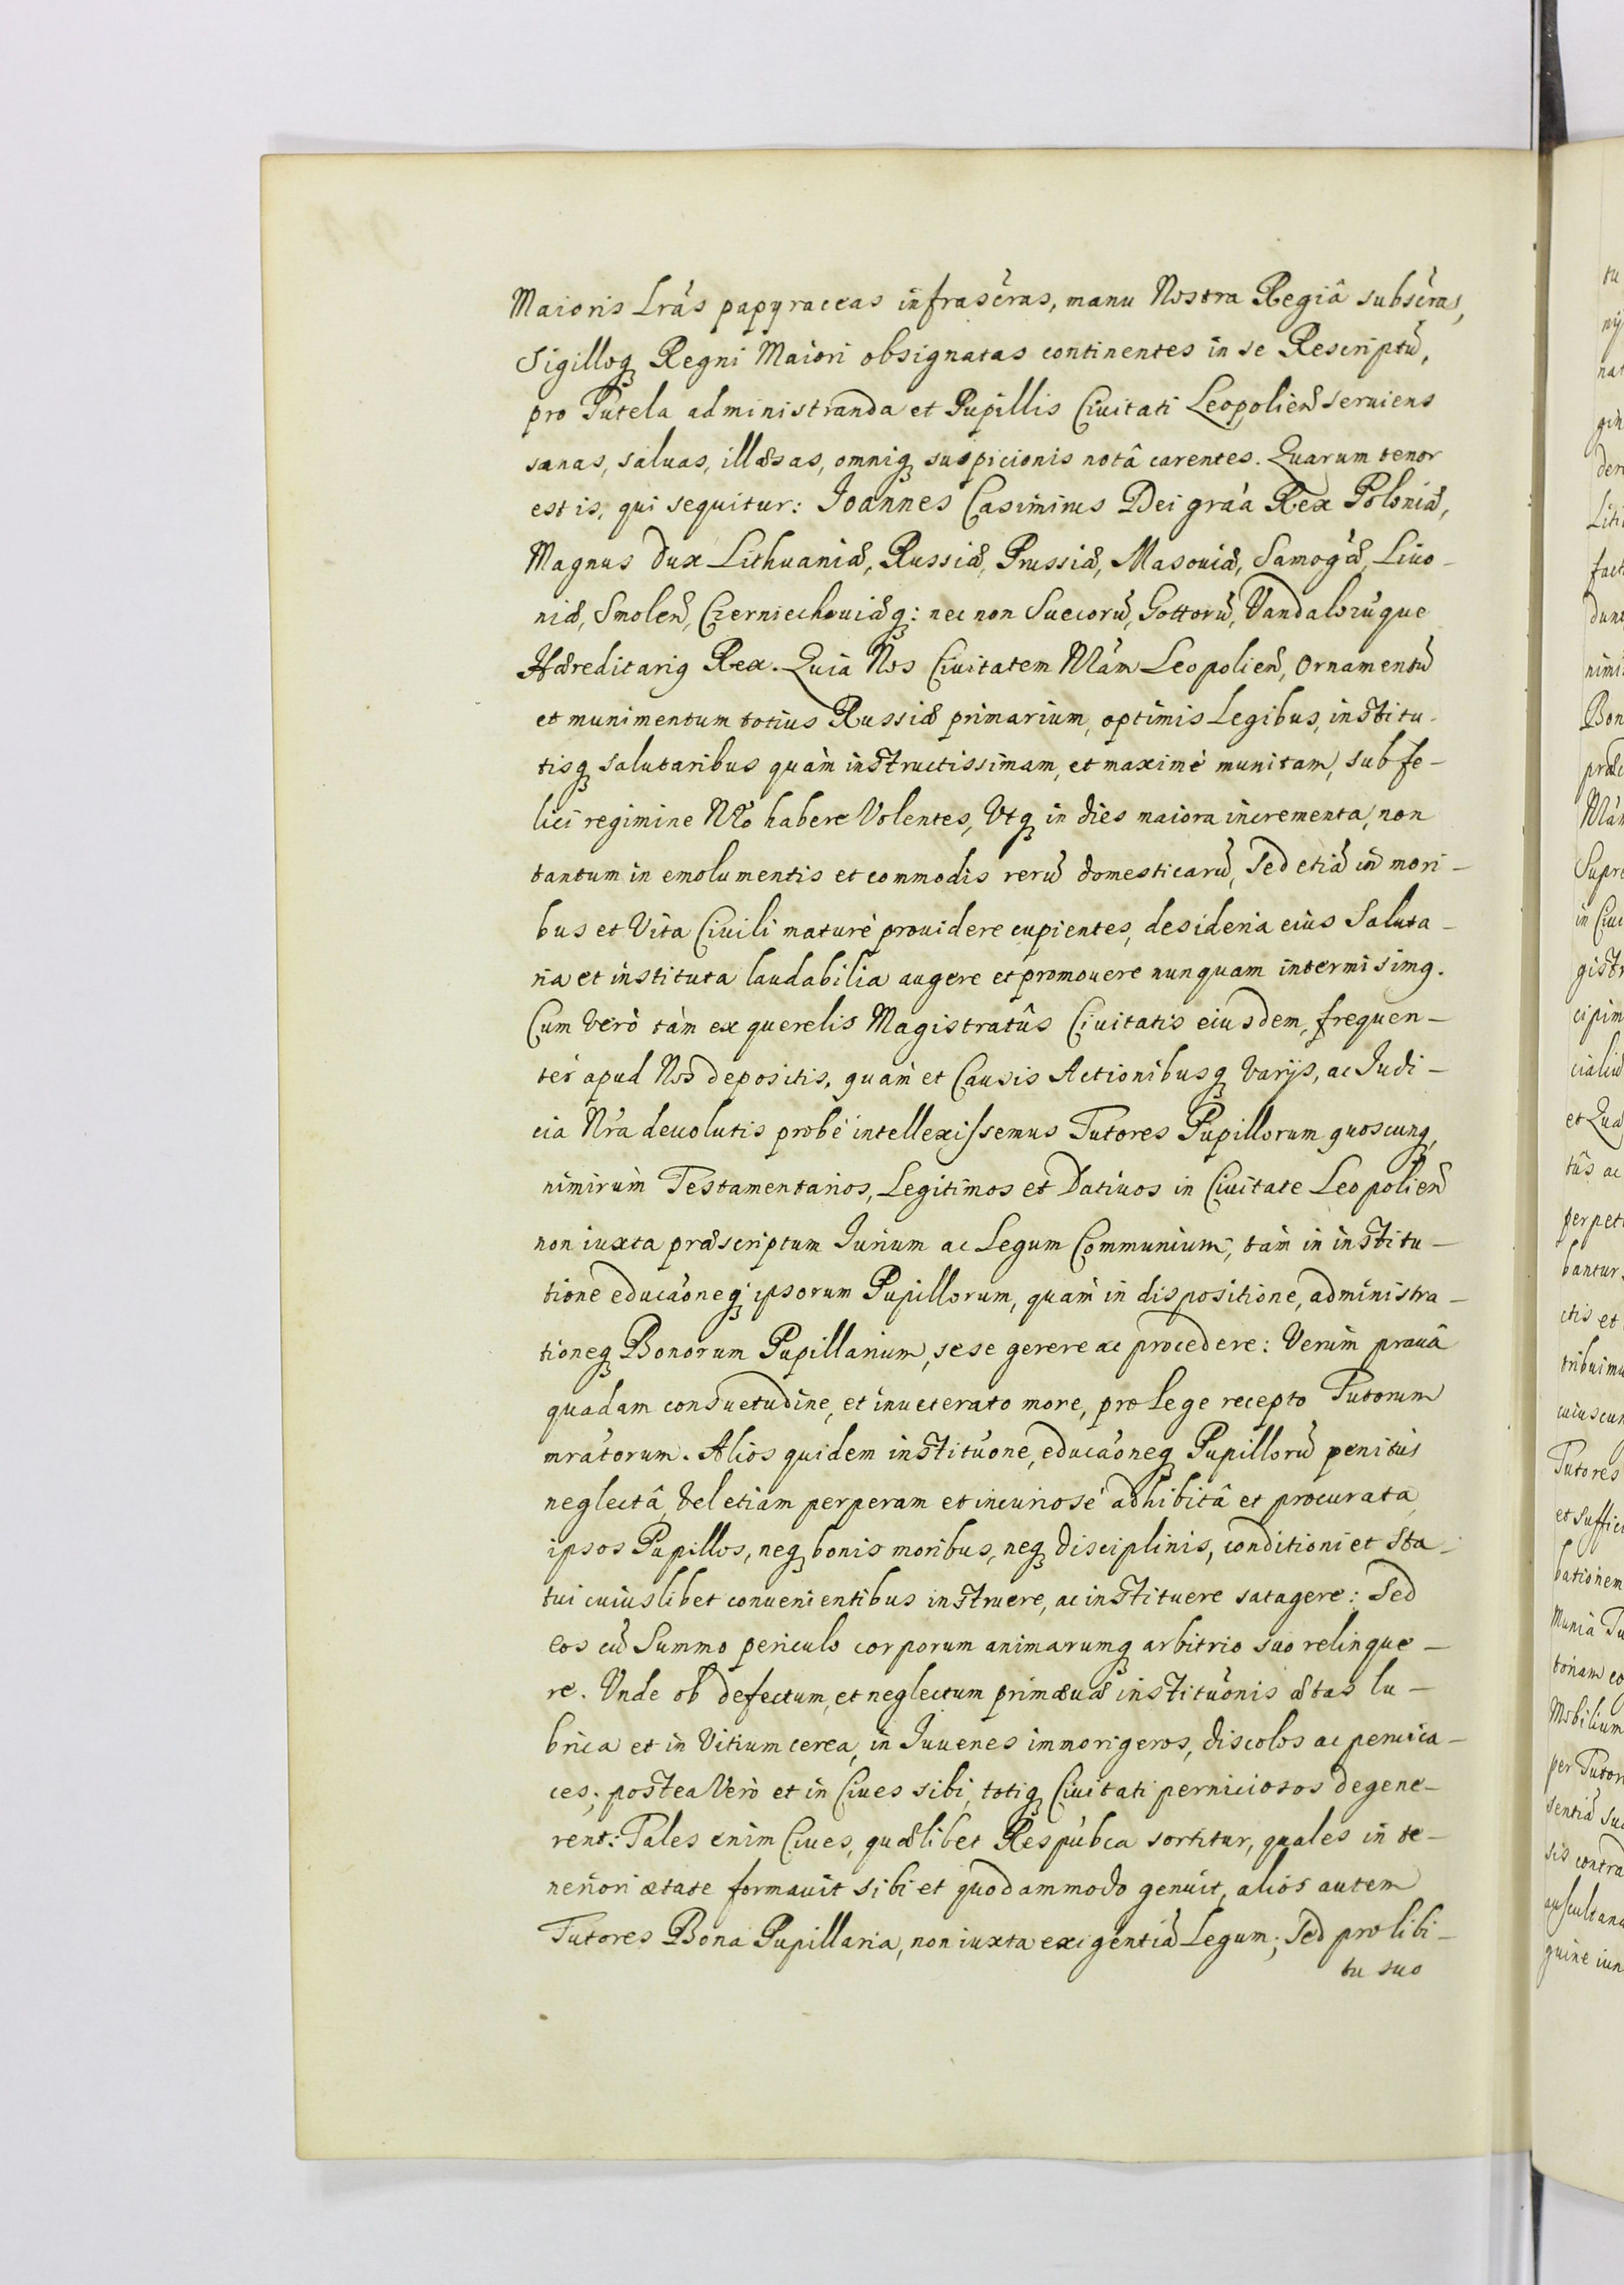 Maioris Lrás papyraceas infrascras, manu Nostra Regiâ subscras,
Sigilloq Regni Maiori obsignatas continentes in se Rescriptũ,
pro Tutela administranda et Pupillis Ciuitati Leopolien̄ seruiens
sanas, saluas, illæsas, omniq suspicionis notâ carentes. Quarum tenor
est is, qui sequitur: Joannes Casimirus Dei graá Rex Poloniæ,
Magnus Dux Lithuaniæ, Russiæ, Prussiæ, Masouiæ, Samogæ, Liuo-
niæ, Smolen̄, Czerniechouiæq: nec non Suecorũ, Gottorũ, Vandalorũque
Hæreditariq Rex. Quia Nos Ciuitatem Nrám Leopolien̄, Ornamentũ
et munimentum totius Russiæ primarium, optimis Legibus, institu-
tisq salutaribus quàm instructissimam, et maximè munitam, sub fe-
lici regimine Nró habere Volentes, Vtq in dies maiora incrementa, non
tantum in emolumentis et commodis rerũ domesticarũ, Sed etiã in mori-
bus et Vita Ciuili maturè prouidere cupientes, desideria eius Saluta-
ria et instituta laudabilia augere et promouere nunquam intermisimq.
Cum Verò tàm ex querelis Magistratûs Ciuitatis eiusdem, frequen-
ter apud Nos depositis, quàm et Causis Actionibusq Varijs, ac Judi-
cia Nrá deuolutis probè intellexissemus Tutores Pupillorum quoscunq,
nimirùm Testamentarios, Legitimos et Datiuos in Ciuitate Leopolien̄
non iuxta præscriptum Jurium ac Legum Communium, tàm in institu-
tione educáoneq ipsorum Pupillorum, quàm in dispositione, administra-
tioneq Bonorum Pupillarium, sese gerere ac procedere: Verùm prauâ
quadam consuetudine, et inueterato more, pro Lege recepto Tutorum
mratorum. Alios quidem instituóne, educáoneq Pupillorũ penitùs
neglectâ, Vel etiam perperam et incuriosè adhibitâ et procurata
ipsos Pupillos, neq bonis moribus, neq Disciplinis, conditioni et Sta-
tui cuiuslibet conuenientibus instruere, ac instituere satagere: Sed
eos cũ Summo periculo corporum animarumq arbitrio suo relinque-
re. Vnde ob defectum, et neglectum primæuæ instituónis ætas lu-
brica et in Vitium cerea, in Juuenes immorigeros, discolos ac peruica-
ces; postea Verò et in Ciues sibi, totiq Ciuitati perniciosos degene-
rent: Tales enim Ciues, quælibet Respúbca sortitur, quales in te-
neriori ætate formauit sibi et quodammodo genuit, alios autem
Tutores Bona Pupillaria, non iuxta exigentiã Legum; Sed pro libi-
tu suo